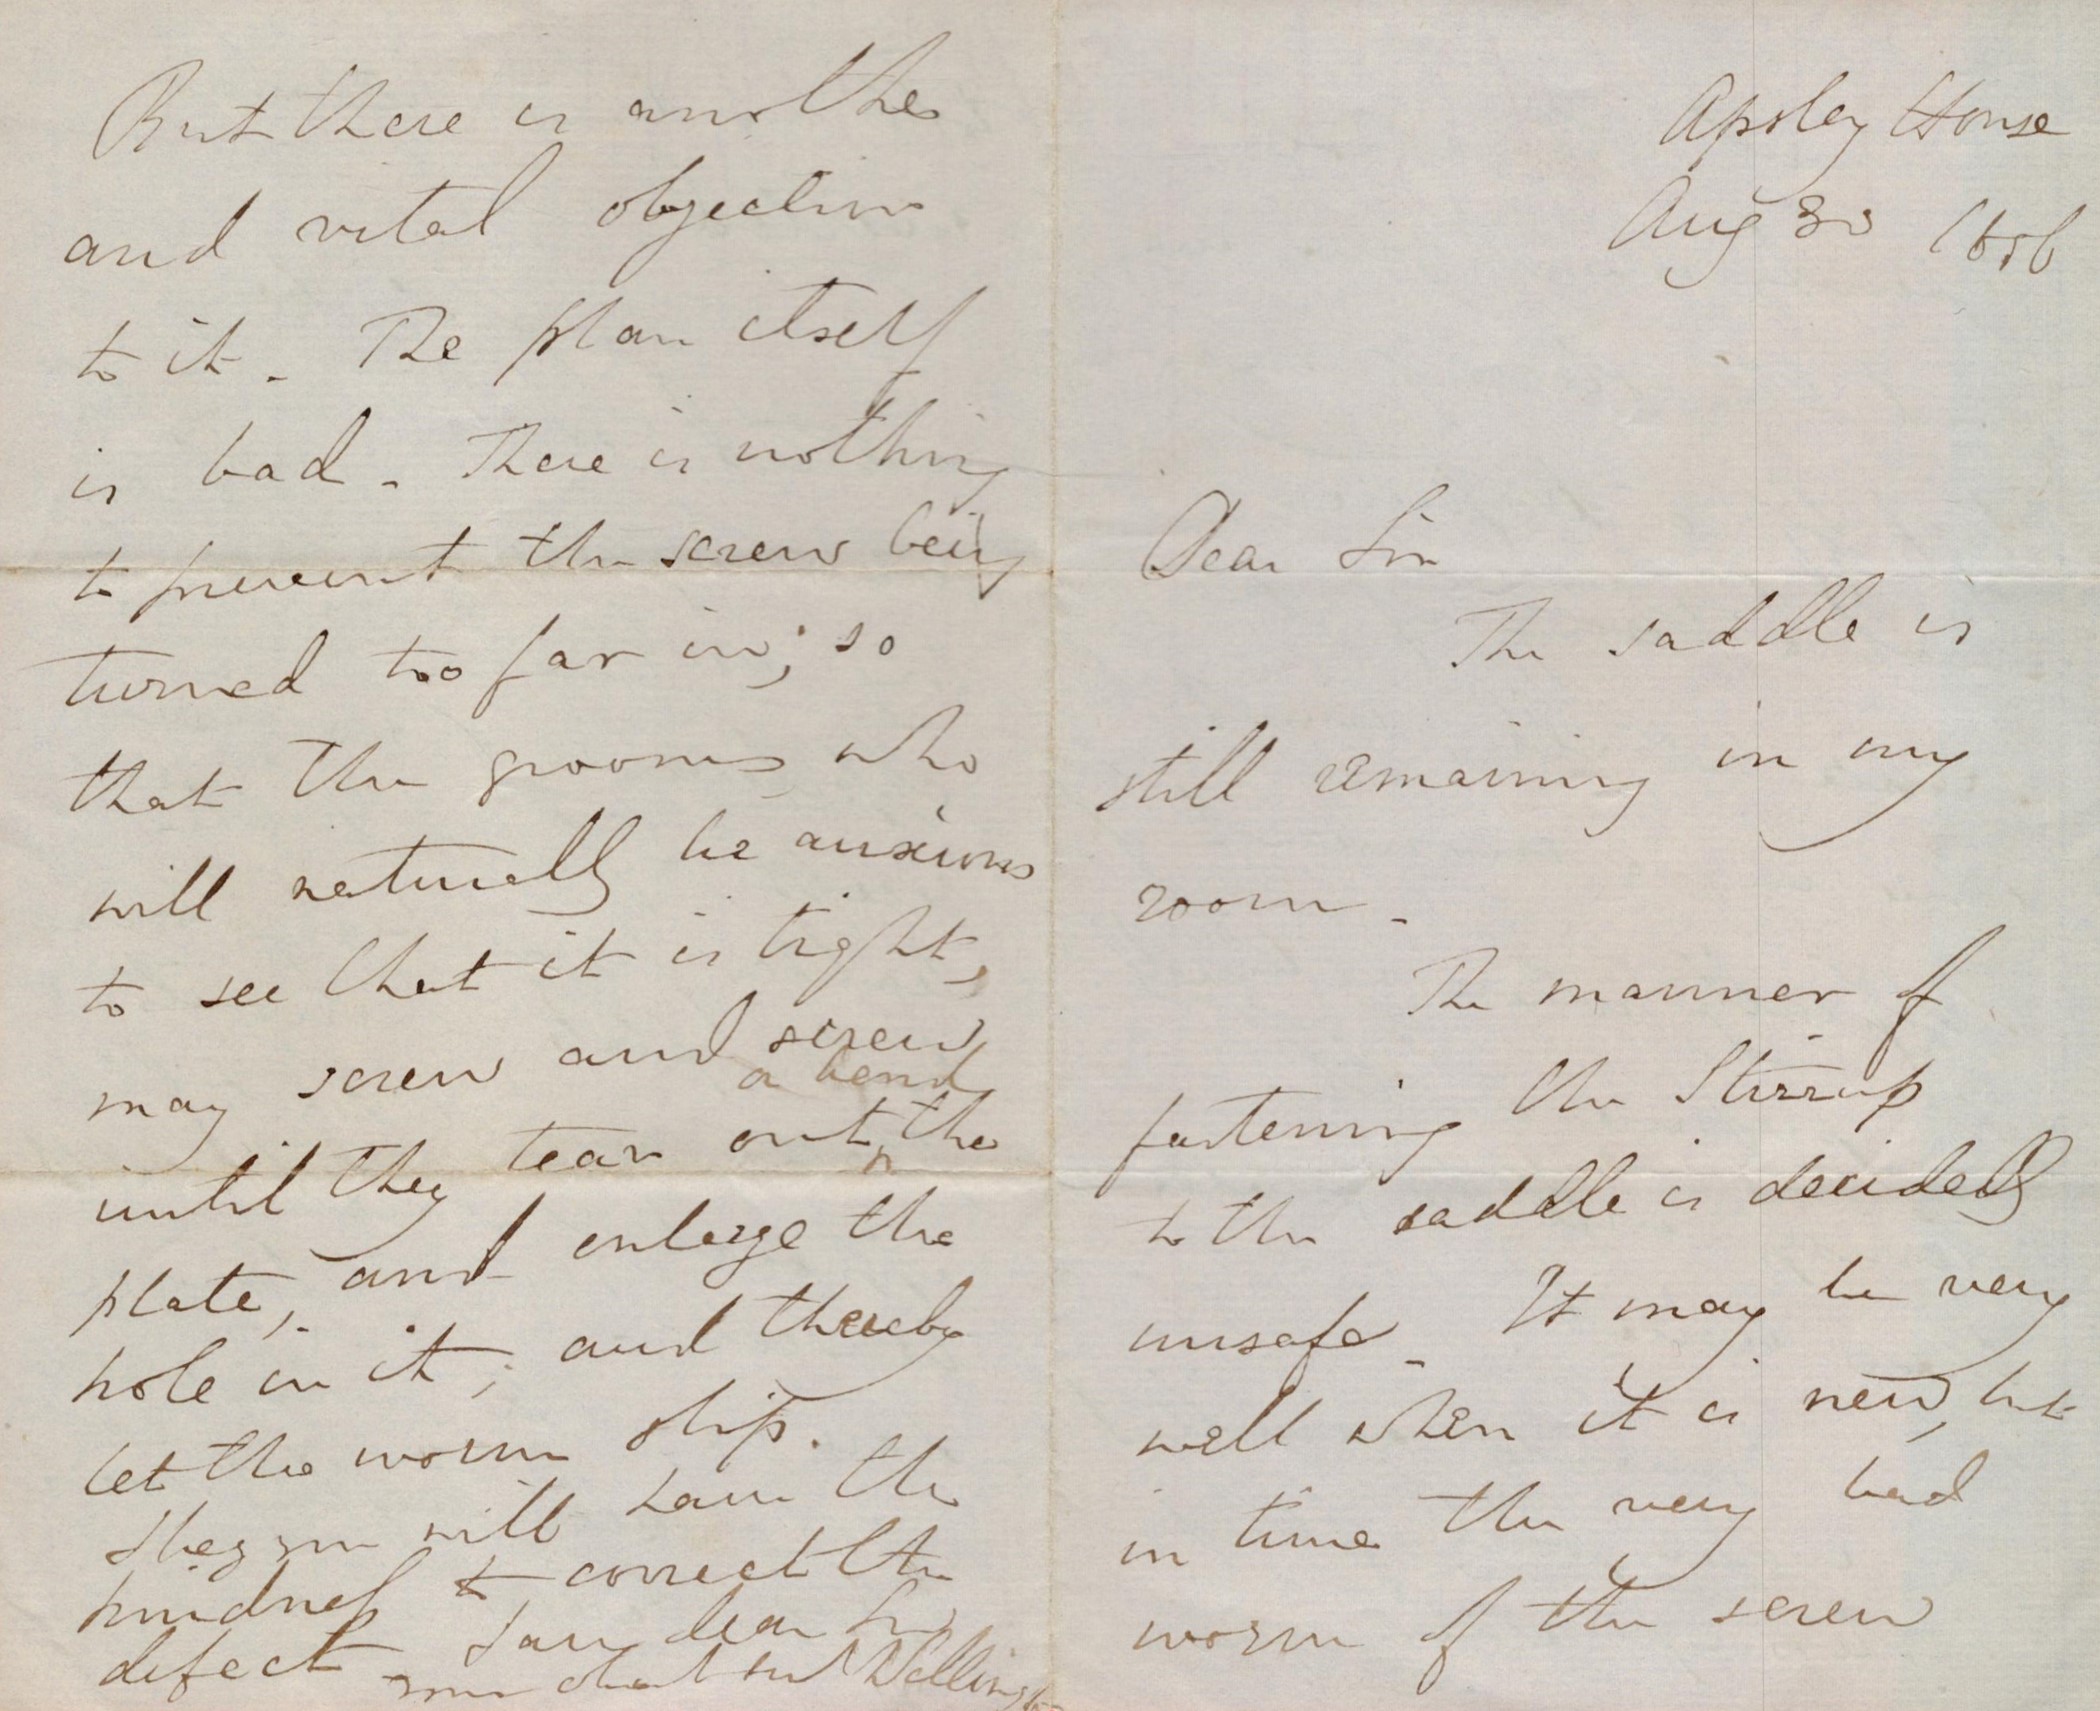 Apsley House
Aug 30 1856
Dear Sir
The saddle is
still remaining in my
room.
The manner of
fastening the Stirrup
to the saddle is decidedly
unsafe. It may be very
well when it is new, but
in time the very bad
worm of the screw
But there is another
and vital objection
to it. The plan itself
is bad. There is nothing
to prevent the screw being
turned too far in; so
that the grooms who
will naturally be anxious
to see that it is tight,
may screw and screw
or bend
until they tear out the
plate, and enlarge the
hole in it; and thereby
let the worm slip.
I beg you will have the
kindness to correct the
defect. I am dear Sir
your obedt svt Wellington